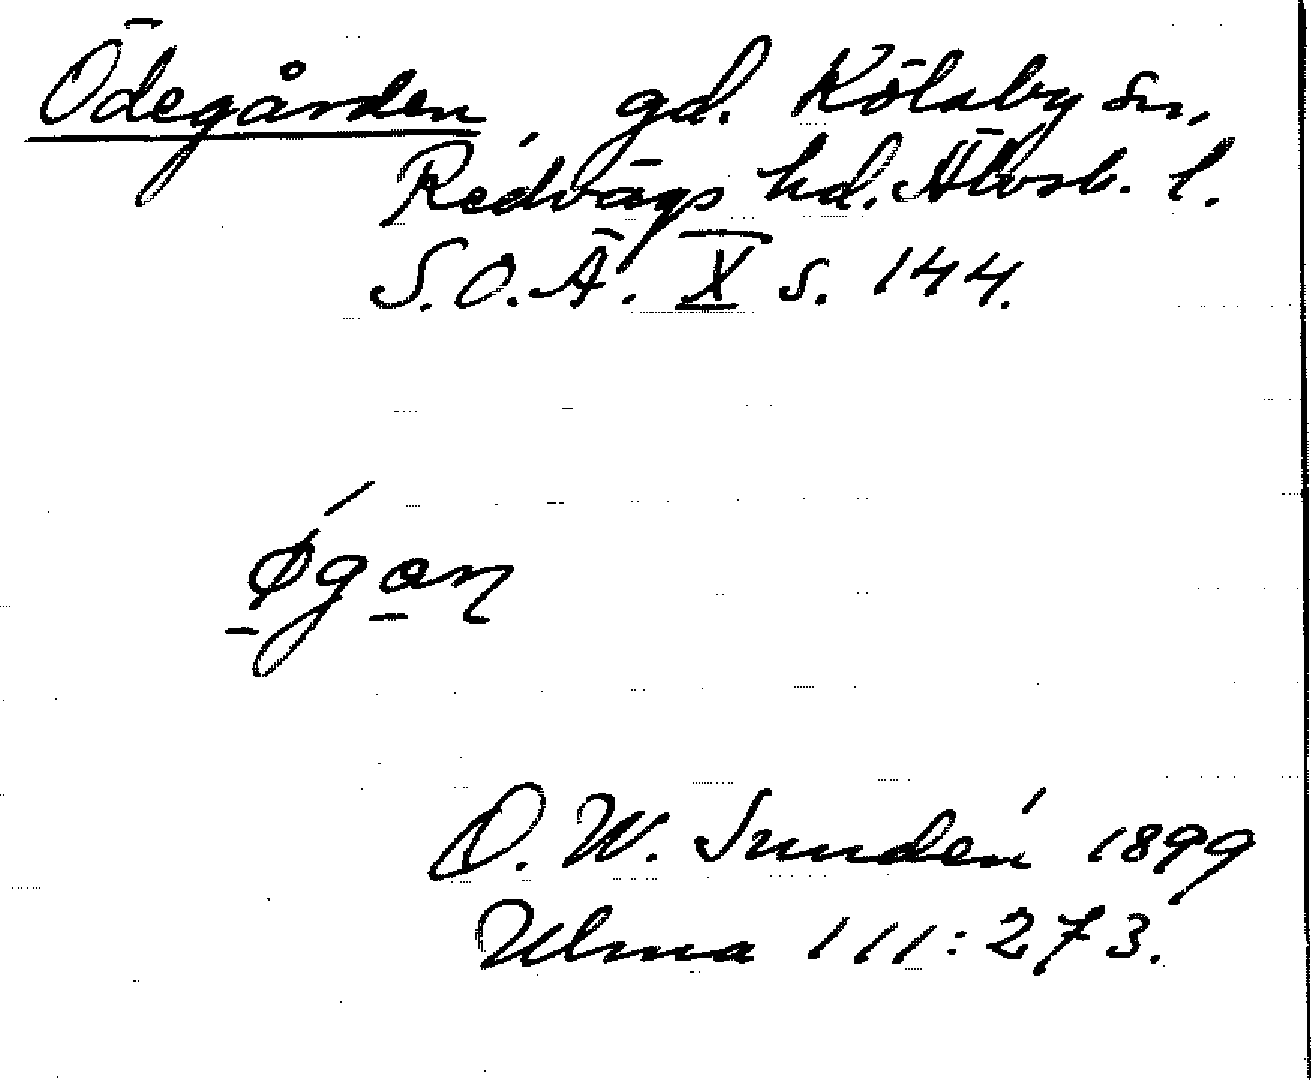 Ödegården, gd. Kölaby sn,
Redvägs hd. Älvsb. l.
S.O.Ä. X s. 144.
D. W. Sundén 1899
Ulma 111:273.